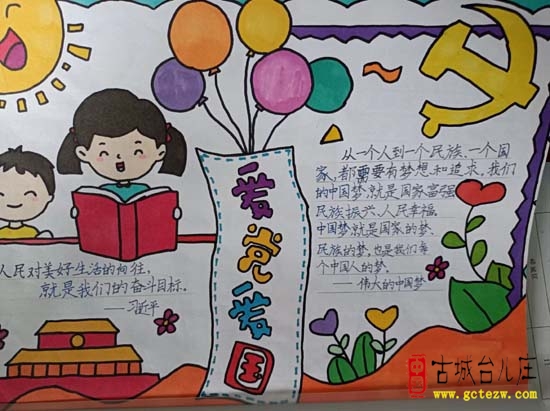 爱党爱国
从一个人到一个民族、一个国
家,都需要有梦想和追求。我们
的中国梦,就是国家富强
民族振兴、人民幸福。
中国梦就是国家的梦、
民族的梦,也是我们每
个中国人的梦。
——伟大的中国梦
人民对美好生活的向往,
就是我们的奋斗目标。
——习近平
古城台儿庄
www.gctezw.com